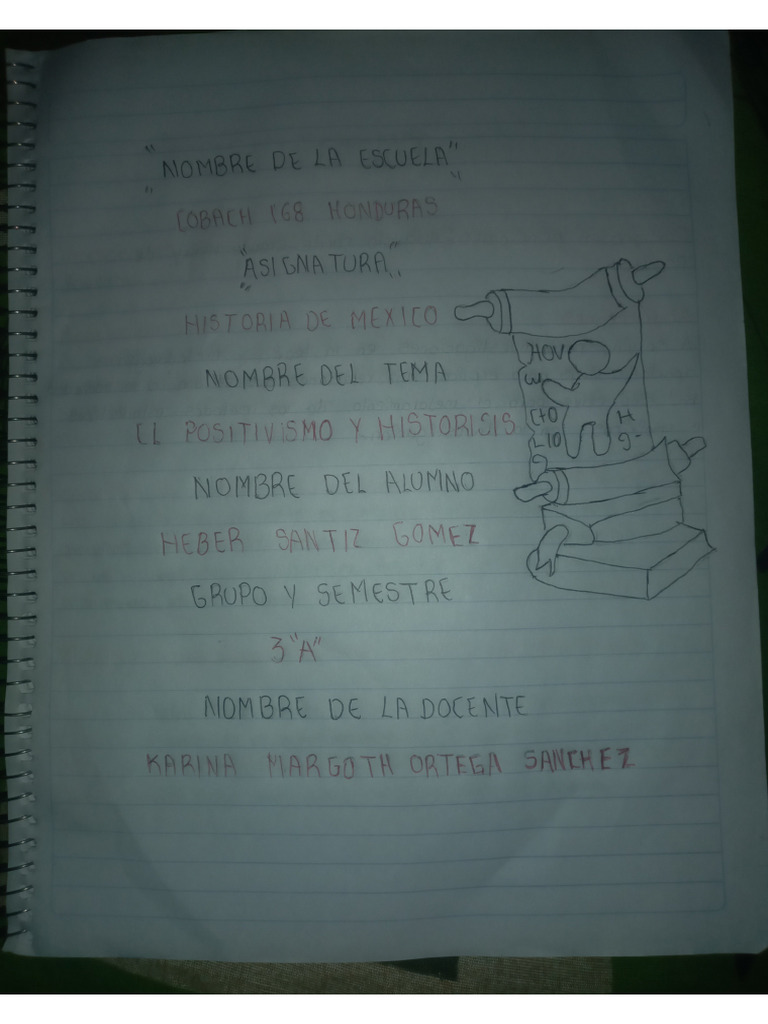 "NOMBRE DE LA ESCUELA"
COBACH 168 HONDURAS
"ASIGNATURA"
HISTORIA DE MEXICO
NOMBRE DEL TEMA
EL POSITIVISMO Y HISTORISIS
NOMBRE DEL ALUMNO
HEBER SANTIZ GOMEZ
GRUPO Y SEMESTRE
3 "A"
NOMBRE DE LA DOCENTE
KARINA MARGOTH ORTEGA SANCHEZ